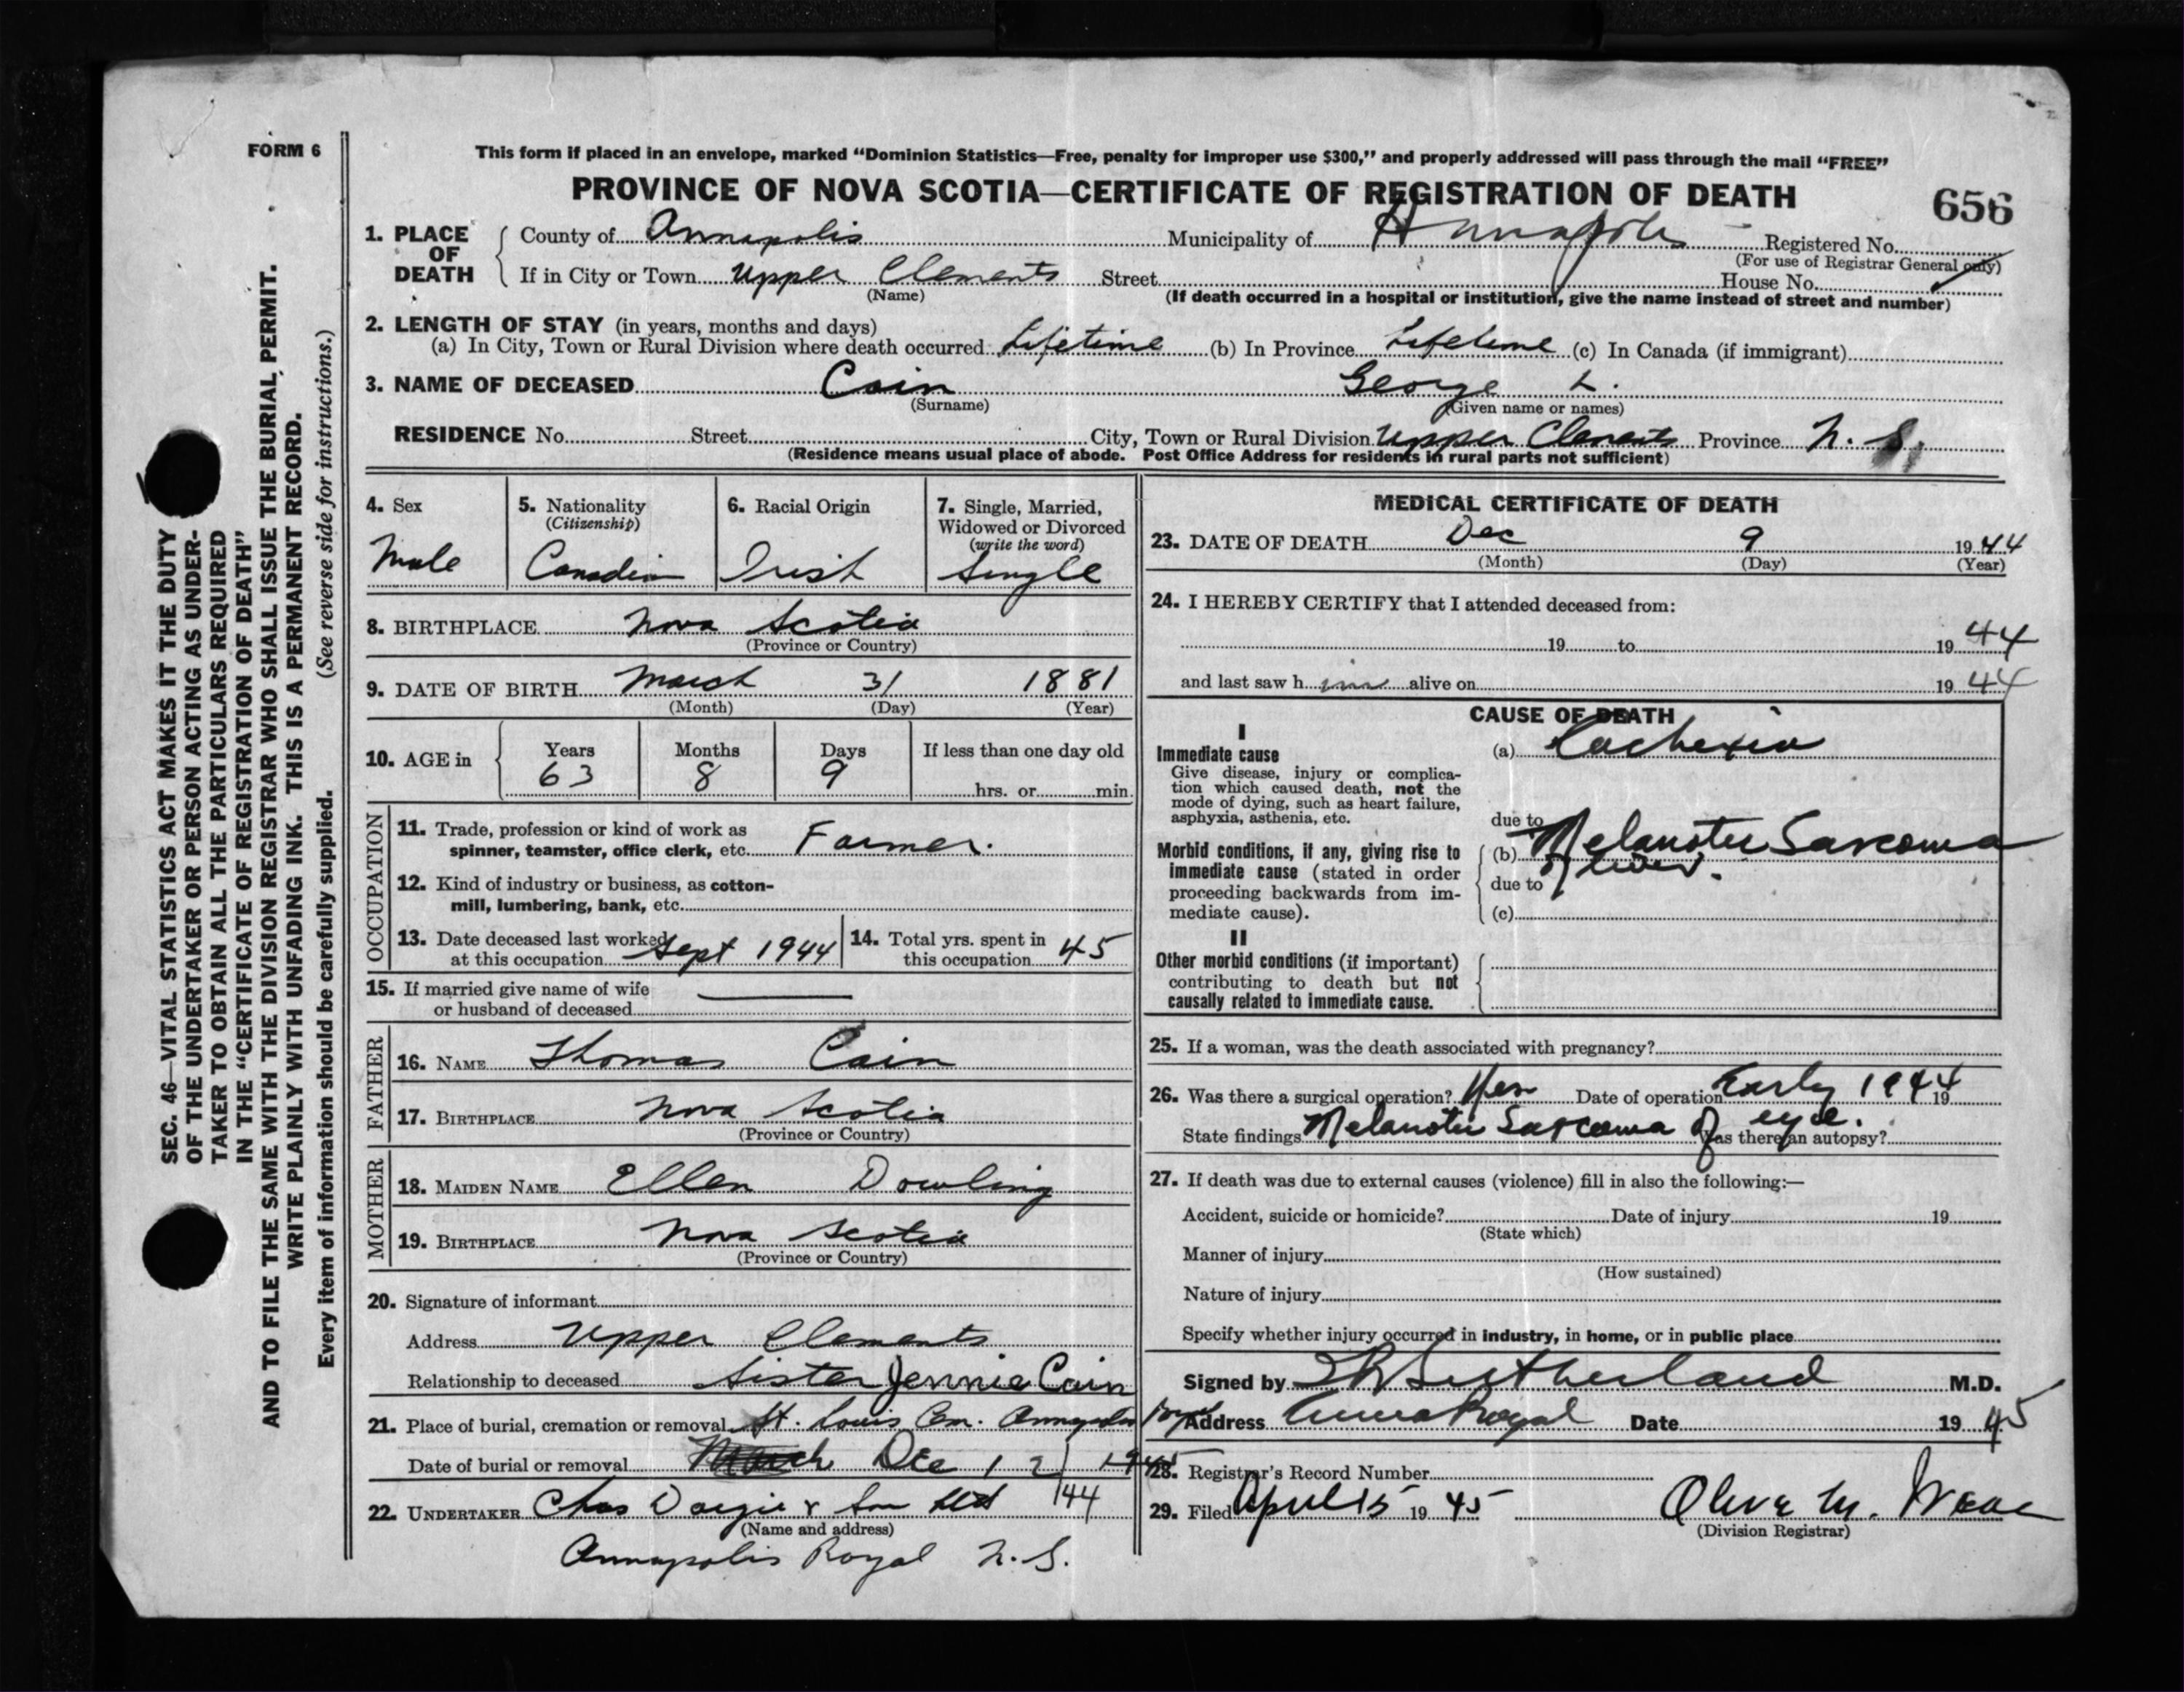 FORM 6
This form if placed in an envelope, marked “Dominion Statistics—Free, penalty for improper use $300,” and properly addressed will pass through the mail “FREE”
PROVINCE OF NOVA SCOTIA—CERTIFICATE OF REGISTRATION OF DEATH
656
1. PLACE OF DEATH County of Annapolis Municipality of Annapolis Registered No.
(For use of Registrar General only)
If in City or Town Upper Clements Street House No.
(Name) (If death occurred in a hospital or institution, give the name instead of street and number)
2. LENGTH OF STAY (in years, months and days)
(a) In City, Town or Rural Division where death occurred Lifetime (b) In Province Lifetime (c) In Canada (if immigrant)
3. NAME OF DECEASED Cain George L.
(Surname) (Given name or names)
RESIDENCE No. Street City, Town or Rural Division Upper Clements Province N. S.
(Residence means usual place of abode. Post Office Address for residents in rural parts not sufficient)
4. Sex 5. Nationality 6. Racial Origin 7. Single, Married,
(Citizenship) Widowed or Divorced
(write the word)
Male Canadian Irish Single
8. BIRTHPLACE Nova Scotia
(Province or Country)
9. DATE OF BIRTH March 31 1881
(Month) (Day) (Year)
10. AGE in Years Months Days If less than one day old
63 8 9
hrs. or min.
OCCUPATION
11. Trade, profession or kind of work as
spinner, teamster, office clerk, etc. Farmer.
12. Kind of industry or business, as cotton-
mill, lumbering, bank, etc.
13. Date deceased last worked 14. Total yrs. spent in
at this occupation Sept 1944 this occupation 45
15. If married give name of wife
or husband of deceased
FATHER
16. NAME Thomas Cain
17. BIRTHPLACE Nova Scotia
(Province or Country)
MOTHER
18. MAIDEN NAME Ellen Dowling
19. BIRTHPLACE Nova Scotia
(Province or Country)
20. Signature of informant
Address Upper Clements
Relationship to deceased Sister Jennie Cain
21. Place of burial, cremation or removal St. Louis Cem. Annapolis Royal
Date of burial or removal March Dec 12/44
22. UNDERTAKER Chas Dargie & Son Ltd
(Name and address)
Annapolis Royal N.S.
MEDICAL CERTIFICATE OF DEATH
23. DATE OF DEATH Dec 9 1944
(Month) (Day) (Year)
24. I HEREBY CERTIFY that I attended deceased from:
19 to 1944
and last saw him alive on 1944
CAUSE OF DEATH
I
Immediate cause (a) Cachexia
Give disease, injury or complica-
tion which caused death, not the
mode of dying, such as heart failure,
asphyxia, asthenia, etc. due to
Morbid conditions, if any, giving rise to (b) Melanotic Sarcoma
immediate cause (stated in order of liver.
proceeding backwards from im- due to
mediate cause). (c)
II
Other morbid conditions (if important)
contributing to death but not
causally related to immediate cause.
25. If a woman, was the death associated with pregnancy?
26. Was there a surgical operation? Yes Date of operation Early 1944 19
State findings Melanotic Sarcoma of eye. Was there an autopsy?
27. If death was due to external causes (violence) fill in also the following:—
Accident, suicide or homicide? Date of injury 19
(State which)
Manner of injury
(How sustained)
Nature of injury
Specify whether injury occurred in industry, in home, or in public place
Signed by Sutherland M.D.
Address Anna Royal Date 1945
28. Registrar's Record Number
29. Filed April 15 1945 Olive M.
(Division Registrar)
SEC. 46—VITAL STATISTICS ACT MAKES IT THE DUTY
OF THE UNDERTAKER OR PERSON ACTING AS UNDER-
TAKER TO OBTAIN ALL THE PARTICULARS REQUIRED
IN THE “CERTIFICATE OF REGISTRATION OF DEATH”
AND TO FILE THE SAME WITH THE DIVISION REGISTRAR WHO SHALL ISSUE THE BURIAL PERMIT.
WRITE PLAINLY WITH UNFADING INK. THIS IS A PERMANENT RECORD.
Every item of information should be carefully supplied. (See reverse side for instructions.)